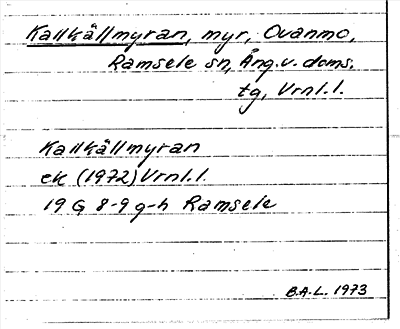 Kallkällmyran, myr, Ovanmo,
Ramsele sn, Ång.v. doms.
tg, Vrnl.l.
Kallkällmyran
ek (1972) Vrnl.l.
19 G 8-9 g-h Ramsele
B.A.L. 1973